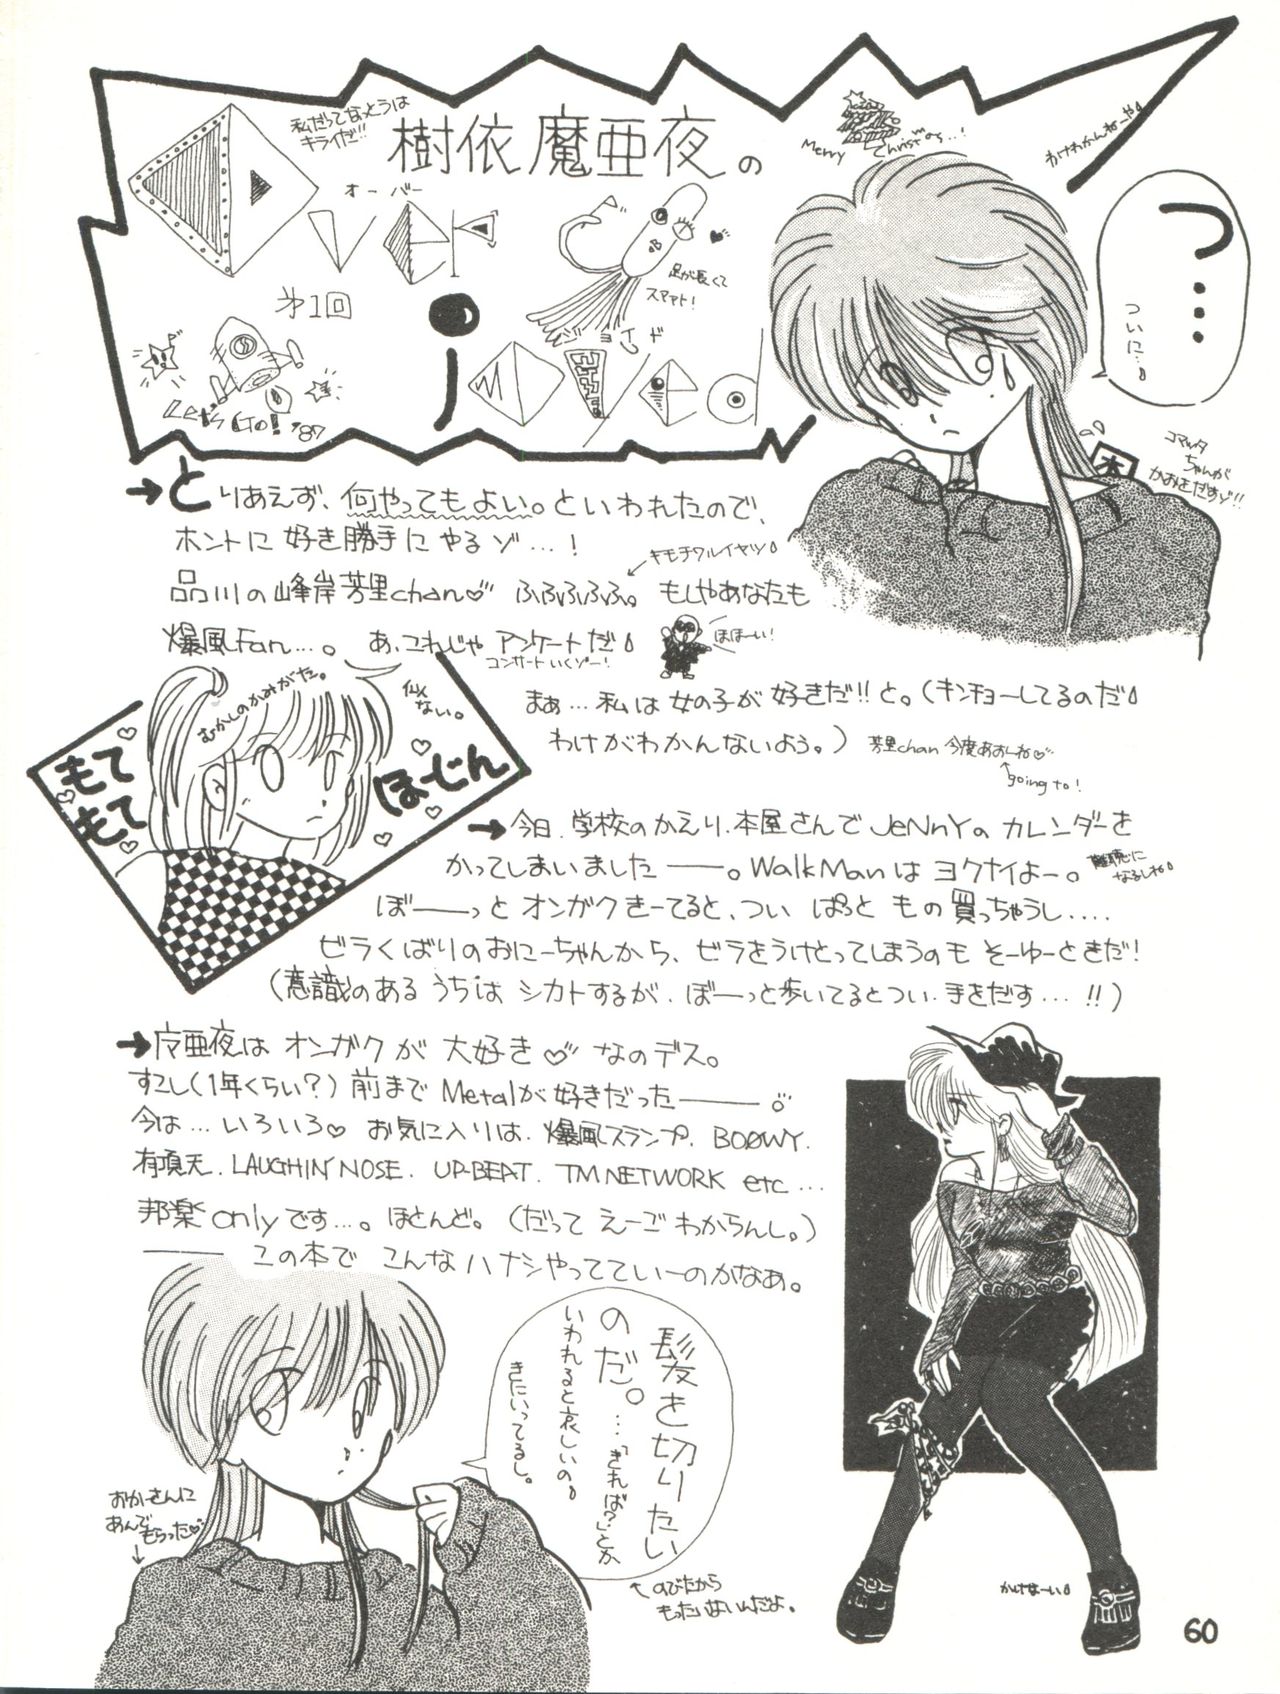 私だってなっとうは
キライだ!!
樹依魔亜夜の
Merry Christmas...!
わけわかんねーや
オーバー
足が長くて
スマァト!
第1回
Let's Go! '87
つ…
ついに…
コマッタ
ちゃんが
かおをだすゾ!!
→とりあえず、何やってもよい。といわれたので、
ホントに好き勝手にやるゾ…!
キモチワルイヤツ
品川の峰岸芳里chan♡ ふふふふふ。もしやあなたも
爆風Fan…。あ、これじゃアンケートだ
コンサートいくゾー!
ほほーい!
まぁ…私は女の子が好きだ!!と。(キンチョーしてるのだ
わけがわかんないよう。)
芳里chan 今度あおーね♡
going to!
むかしのかみがた。
似てない。
もてもて
ほーじん
→今日、学校のかえり、本屋さんでJeNnYのカレンダーを
かってしまいました——。WalkManはヨクナイよー。
難聴に
なるしね
ぼ——っとオンガクきーてると、ついぱっともの買っちゃうし....
ビラくばりのおにーちゃんから、ビラをうけとってしまうのもそーゆーときだ!
(意識のあるうちはシカトするが、ぼーっと歩いてるとつい、手をだす…!!)
→魔亜夜はオンガクが大好き♡なのデス。
すこし(1年くらい?)前までMetalが好きだった——。
今は…いろいろ♡ お気に入りは、爆風スランプ、BOØWY、
有頂天、LAUGHIN' NOSE、UP-BEAT、TM NETWORK etc...
邦楽onlyです…。ほとんど。(だってえーごわからんし。)
——この本でこんなハナシやってていーのかなあ。
髪を切りたい
のだ。…「きれば?」とか
いわれると哀しいの
きにいってるし。
のびたから
もったいないんだよ。
おかーさんに
あんで
もらった♡
60